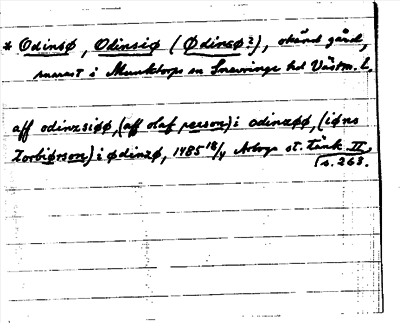 * Odinsø, Odinsiø (Ødinsø?), okänd gård,
senast i Munktorps sn Snevringe hd Västm. l.
aff odinzsiøø, (aff olaf person) i odinzøø, (iøns
Torbiørson) i ødinzø, 1485 18/4 Arboga st. tänk. II,
s. 268.